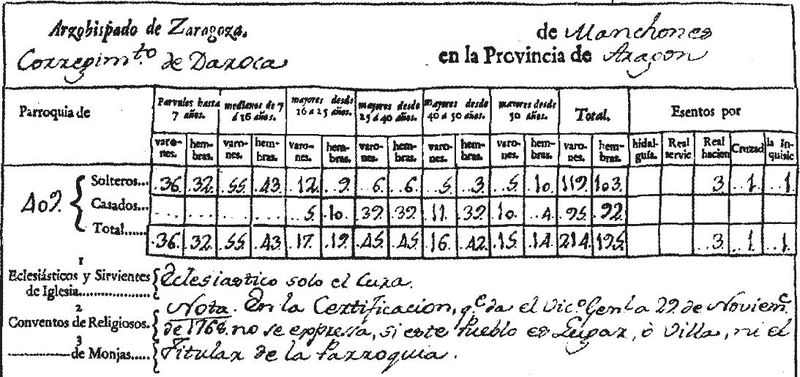 Arzobispado de Zaragoza. de Manchones
Corregim.to de Daroca en la Provincia de Aragon
Parroquia de Parvulos hasta 7 años. medianos de 7 á 16 años. mayores desde 16 a 25 años. mayores desde 25 á 40 años. mayores desde 40 a 50 años. mayores desde 50 años. Total. Esentos por
varones. hembras. varones. hembras. varones. hembras. varones. hembras. varones. hembras. varones. hembras. varones. hembras. hidalguía. Real servic Real hacien Cruzad la Inquisic
409. Solteros... 36. 32. 55. 43. 12. 9. 6. 6. 5. 3. 5. 10. 119. 103. 3. 1. 1
Casados... 5. 10. 39. 39. 11. 39. 10. 4. 95. 92.
Total...... 36. 32. 55. 43. 17. 19. 45. 45. 16. 42. 15. 14. 214. 195. 3. 1. 1
1
Eclesiásticos y Sirvientes de Iglesia............... Eclesiastico solo el Cura.
2
Conventos de Religiosos. Nota. En la Certificacion, q.e da el Vic.o Gen.l a 29 de Noviem.e
de 1768. no se expresa, si este Pueblo es Lugar, ò Villa, ni el
3
de Monjas..... Titular de la Parroquia.